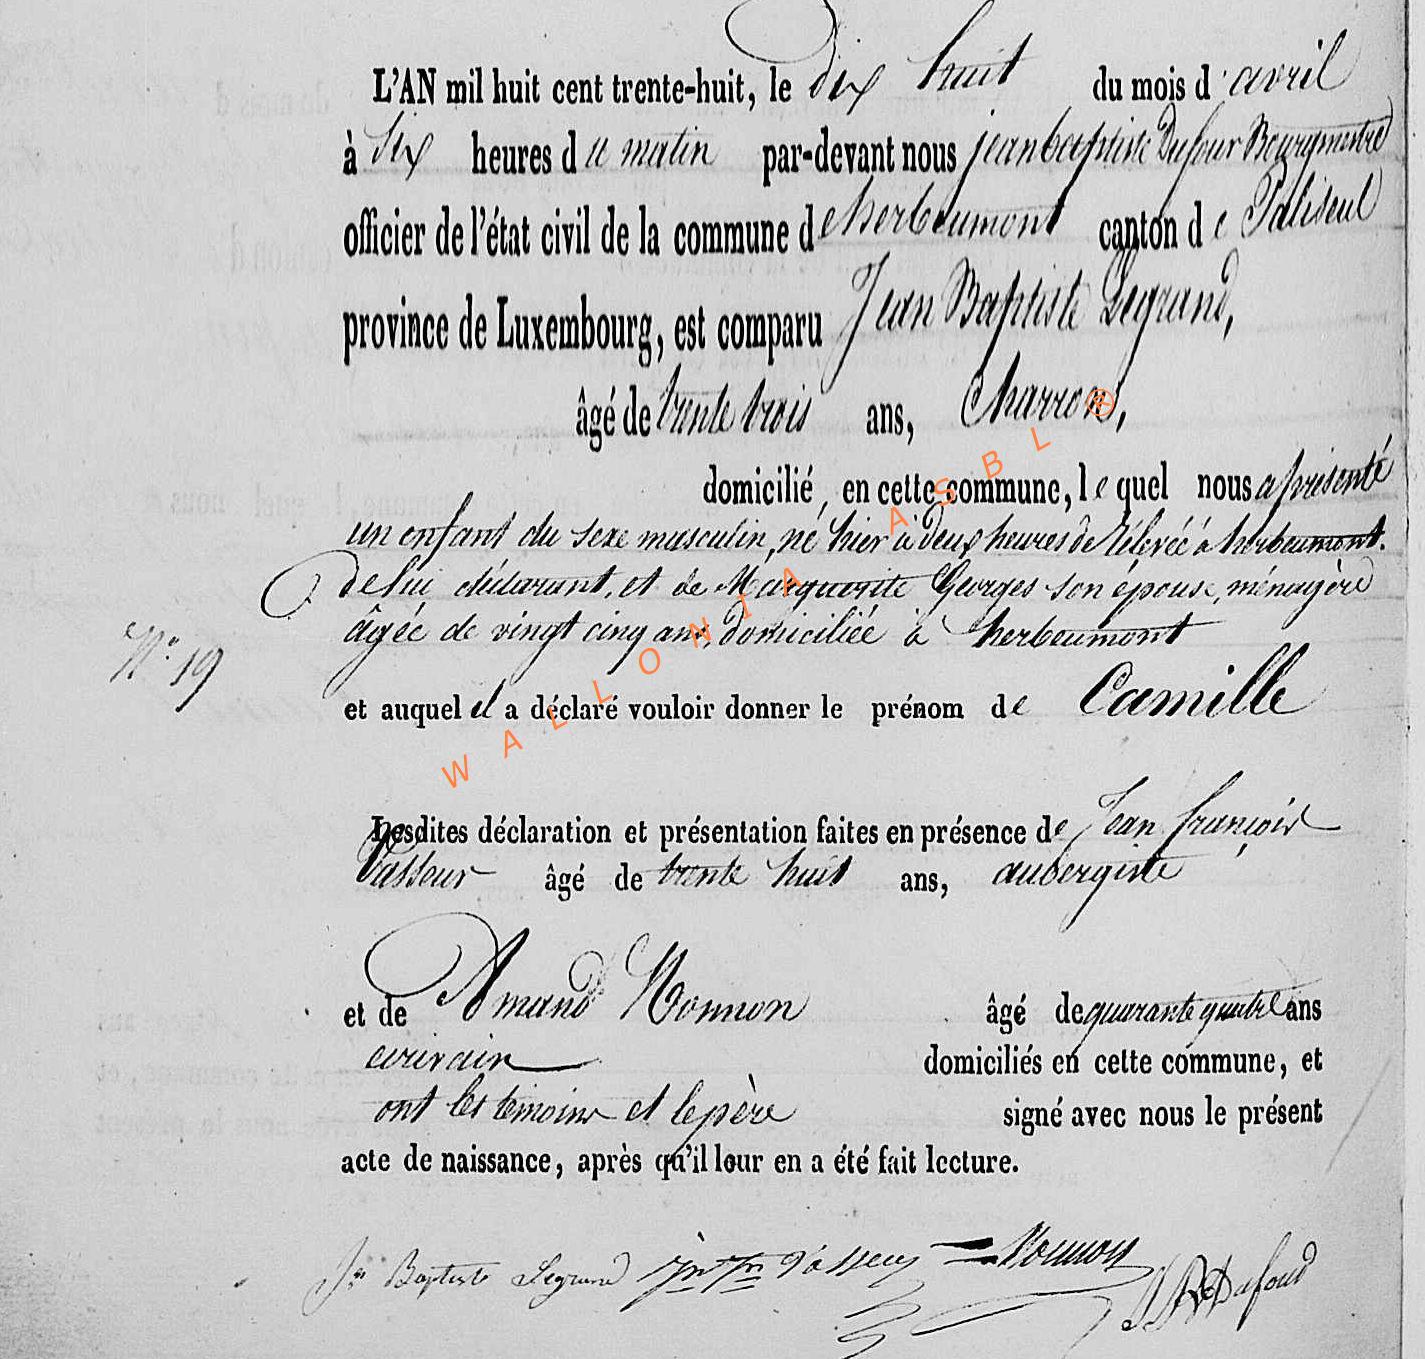 L'AN mil huit cent trente-huit, le dix huit du mois d'avril
à six heures du matin par-devant nous jean baptiste Dufour Bourgmestre
officier de l'état civil de la commune de herbeumont canton de Paliseul
province de Luxembourg, est comparu Jean Baptiste Legrand,
âgé de trente trois ans, Charron,
domicilié, en cette commune, lequel nous a présenté
un enfant du sexe masculin, né hier à deux heures de rélevéé à herbeumont.
de lui déclarant, et de Marguerite Georges son épouse, ménagère
âgée de vingt cinq ans, domiciliée à herbeumont
N° 19
et auquel il a déclaré vouloir donner le prénom de Camille
Lesdites déclaration et présentation faites en présence de Jean françois
Vasseur âgé de trente huit ans, aubergiste
et de Amand Monmon âgé de quarante quatre ans
ecrivain domiciliés en cette commune, et
ont les témoins et le père signé avec nous le présent
acte de naissance, après qu'il leur en a été fait lecture.
Jn Baptiste Legrand Jn fn Vasseur Monmon
WALLONIA ASBL ®